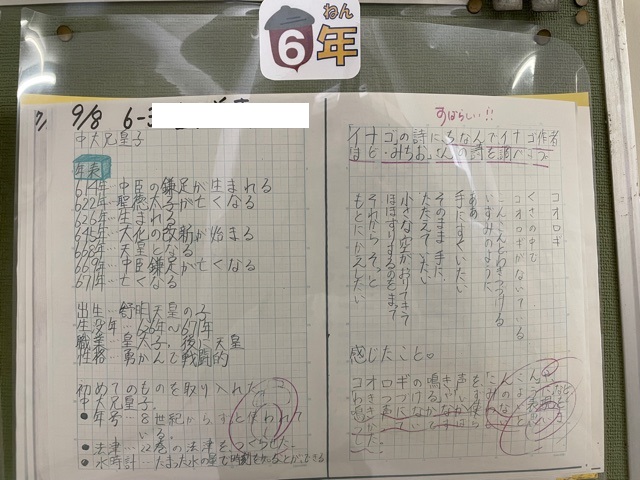 ねん
6年
9/8 6-3
中大兄皇子
年表
614年…中臣の鎌足が生まれる
622年…聖徳太子が亡くなる
626年…生まれる
645年…大化の改新が始まる
668年…天皇となる
669年…中臣鎌足が亡くなる
671年…亡くなる
出生…舒明天皇の子
生没年…626年~671年
職業…皇太子、後に天皇
性格…勇かんで戦闘的
初めてのものを取り入れた
中大兄皇子
●年号…8世紀からずっと使われて
いる。
●法律…22巻の法律をつくらせた
●水時計…たまった水の量で時刻を
すばらしい!!
「イナゴ」の詩にちなんでイナゴ作者
まど・みちおさんの詩を調べ
コオロギ
くさの中で
コオロギがないている
いずみのように
ああ
手にすくいたい
そのまま手に
たたえていたい
小さな空がおりてきて
ほほずりするのをまって
それから そっと
もとにかえしたい
感じたこと。
コオロギの鳴き声を